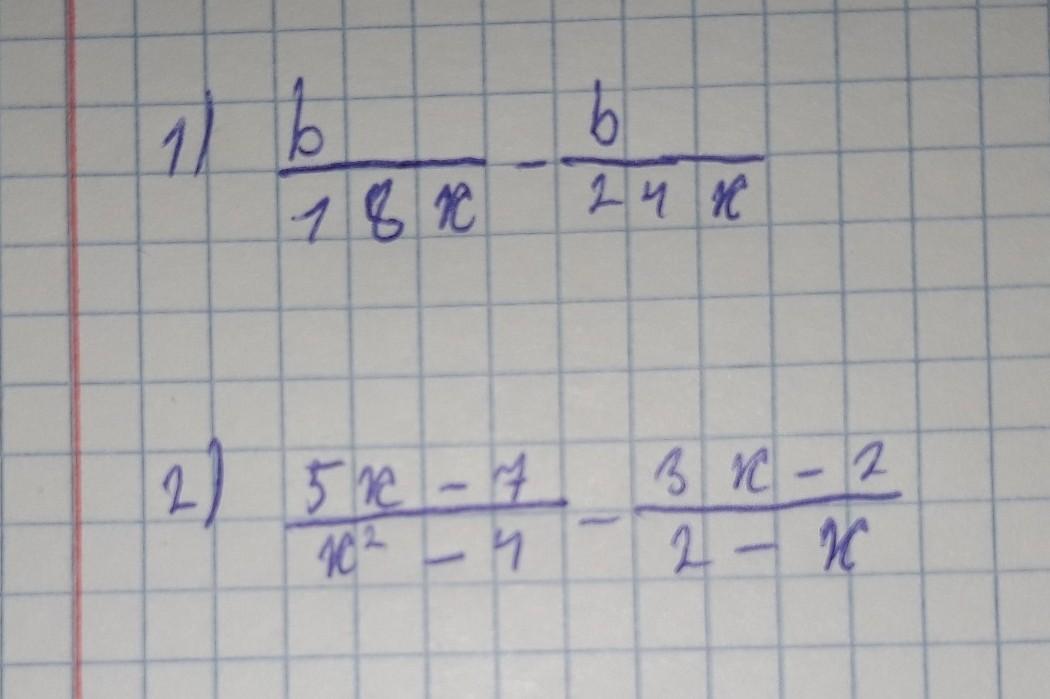 1) b/18x - b/24x
2) 5x - 7/x² - 4 - 3x - 2/2 - x